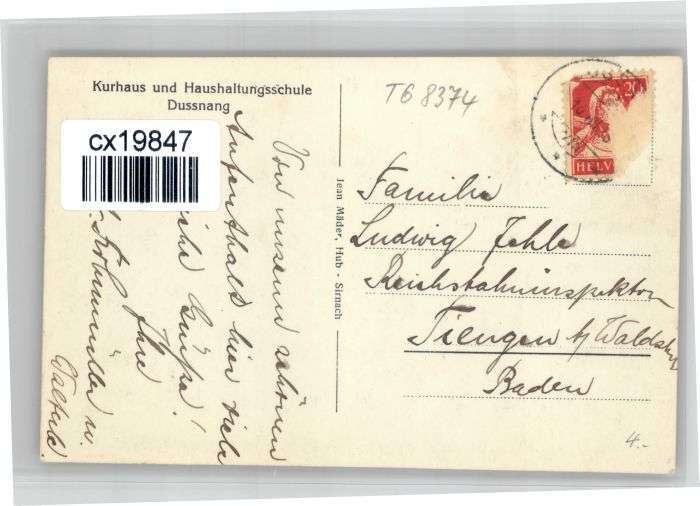 Kurhaus und Haushaltungsschule
Dussnang
TG 8374
cx19847
20
HELV
Jean Mäder, Hub - Sirnach
Von unserem schönen
Aufenthalt hier viele
Grüsse!
Ihre
u.
Familie
Ludwig Jehle
Reichsbahninspektor
Tiengen b/ Waldsh
Baden
4.-